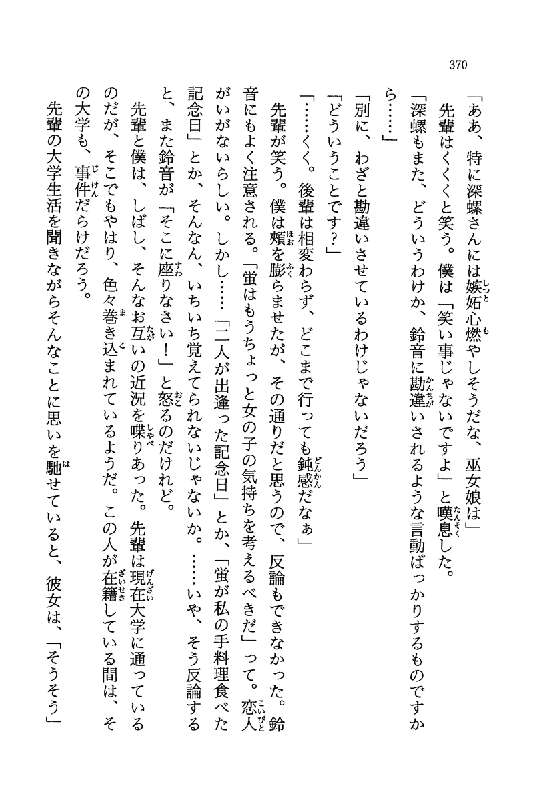 370
「ああ、特に深螺さんには嫉妬心燃やしそうだな、巫女娘は」
先輩はくくくと笑う。僕は「笑い事じゃないですよ」と嘆息した。
「深螺もまた、どういうわけか、鈴音に勘違いされるような言動ばっかりするものですか
ら……」
「別に、わざと勘違いさせているわけじゃないだろう」
「どういうことです？」
「……くく。後輩は相変わらず、どこまで行っても鈍感だなぁ」
先輩が笑う。僕は頬を膨らませたが、その通りだと思うので、反論もできなかった。鈴
音にもよく注意される。「蛍はもうちょっと女の子の気持ちを考えるべきだ」って。恋人
がいがないらしい。しかし……「二人が出逢った記念日」とか、「蛍が私の手料理食べた
記念日」とか、そんなん、いちいち覚えてられないじゃないか。……いや、そう反論する
と、また鈴音が「そこに座りなさい！」と怒るのだけれど。
先輩と僕は、しばし、そんなお互いの近況を喋りあった。先輩は現在大学に通っている
のだが、そこでもやはり、色々巻き込まれているようだ。この人が在籍している間は、そ
の大学も、事件だらけだろう。
先輩の大学生活を聞きながらそんなことに思いを馳せていると、彼女は、「そうそう」